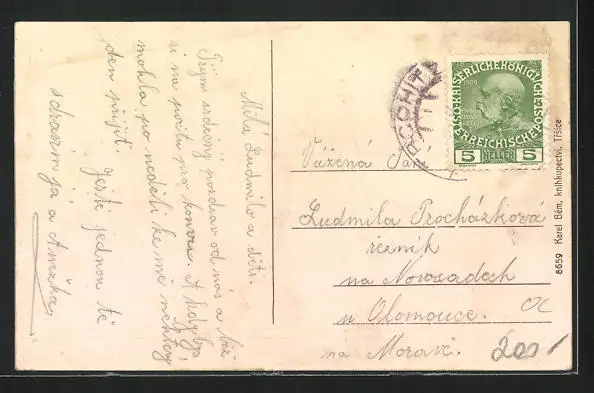 Milá Ludmilo a děti.
Přijmi srdečný pozdrav od nás a běž
si na poštu pro konvu. A kdyby
mohla po neděli ke mě některý
den přijít. Ještě jednou tě
zdravím já a Anežka
KAISERLICHE KÖNIGLICHE
ÖSTERREICHISCHE POST
1908
5 HELLER 5
Vážená Paní
Ludmila Procházková
řezník
na Novosadech
u Olomouce.
na Moravě.
200
8659 Karel Bém, knihkupectví, Tršice